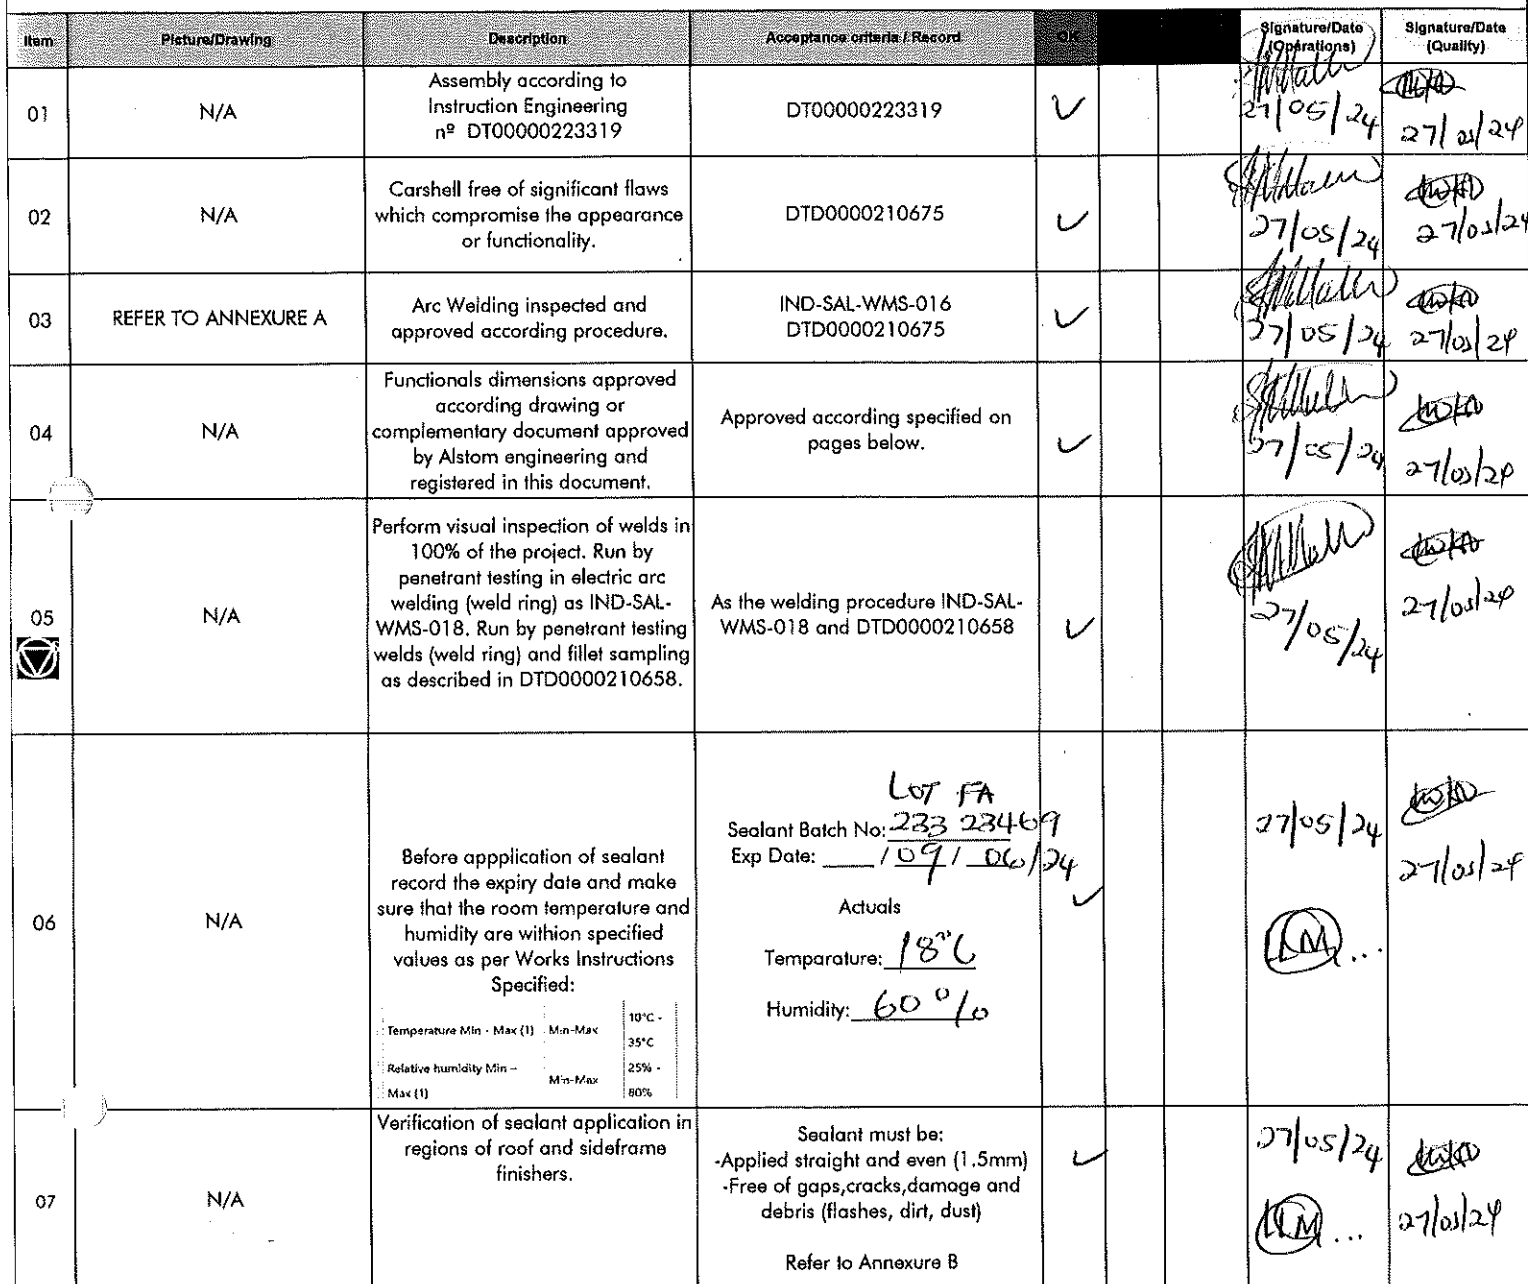 Item Picture/Drawing Description Acceptance criteria / Record OK Signature/Date (Operations) Signature/Date (Quality)
01
N/A
Assembly according to
Instruction Engineering
nº DT00000223319
DT00000223319
✓
27/05/24
27/05/24
02
N/A
Carshell free of significant flaws
which compromise the appearance
or functionality.
DTD0000210675
✓
27/05/24
27/05/24
03
REFER TO ANNEXURE A
Arc Welding inspected and
approved according procedure.
IND-SAL-WMS-016
DTD0000210675
✓
27/05/24
27/05/24
04
N/A
Functionals dimensions approved
according drawing or
complementary document approved
by Alstom engineering and
registered in this document.
Approved according specified on
pages below.
✓
27/05/24
27/05/24
05
N/A
Perform visual inspection of welds in
100% of the project. Run by
penetrant testing in electric arc
welding (weld ring) as IND-SAL-
WMS-018. Run by penetrant testing
welds (weld ring) and fillet sampling
as described in DTD0000210658.
As the welding procedure IND-SAL-
WMS-018 and DTD0000210658
✓
27/05/24
27/05/24
06
N/A
Before appplication of sealant
record the expiry date and make
sure that the room temperature and
humidity are withion specified
values as per Works Instructions
Specified:
Temperature Min - Max (1) Min-Max 10°C -
35°C
Relative humidity Min –
Max (1) Min-Max 25% -
80%
LOT FA
Sealant Batch No: 233 23469
Exp Date: ___ / 09 / 06/24
Actuals
Temparature: 18°C
Humidity: 60%
✓
27/05/24
27/05/24
07
N/A
Verification of sealant application in
regions of roof and sideframe
finishers.
Sealant must be:
-Applied straight and even (1.5mm)
-Free of gaps,cracks,damage and
debris (flashes, dirt, dust)
Refer to Annexure B
✓
27/05/24
27/05/24